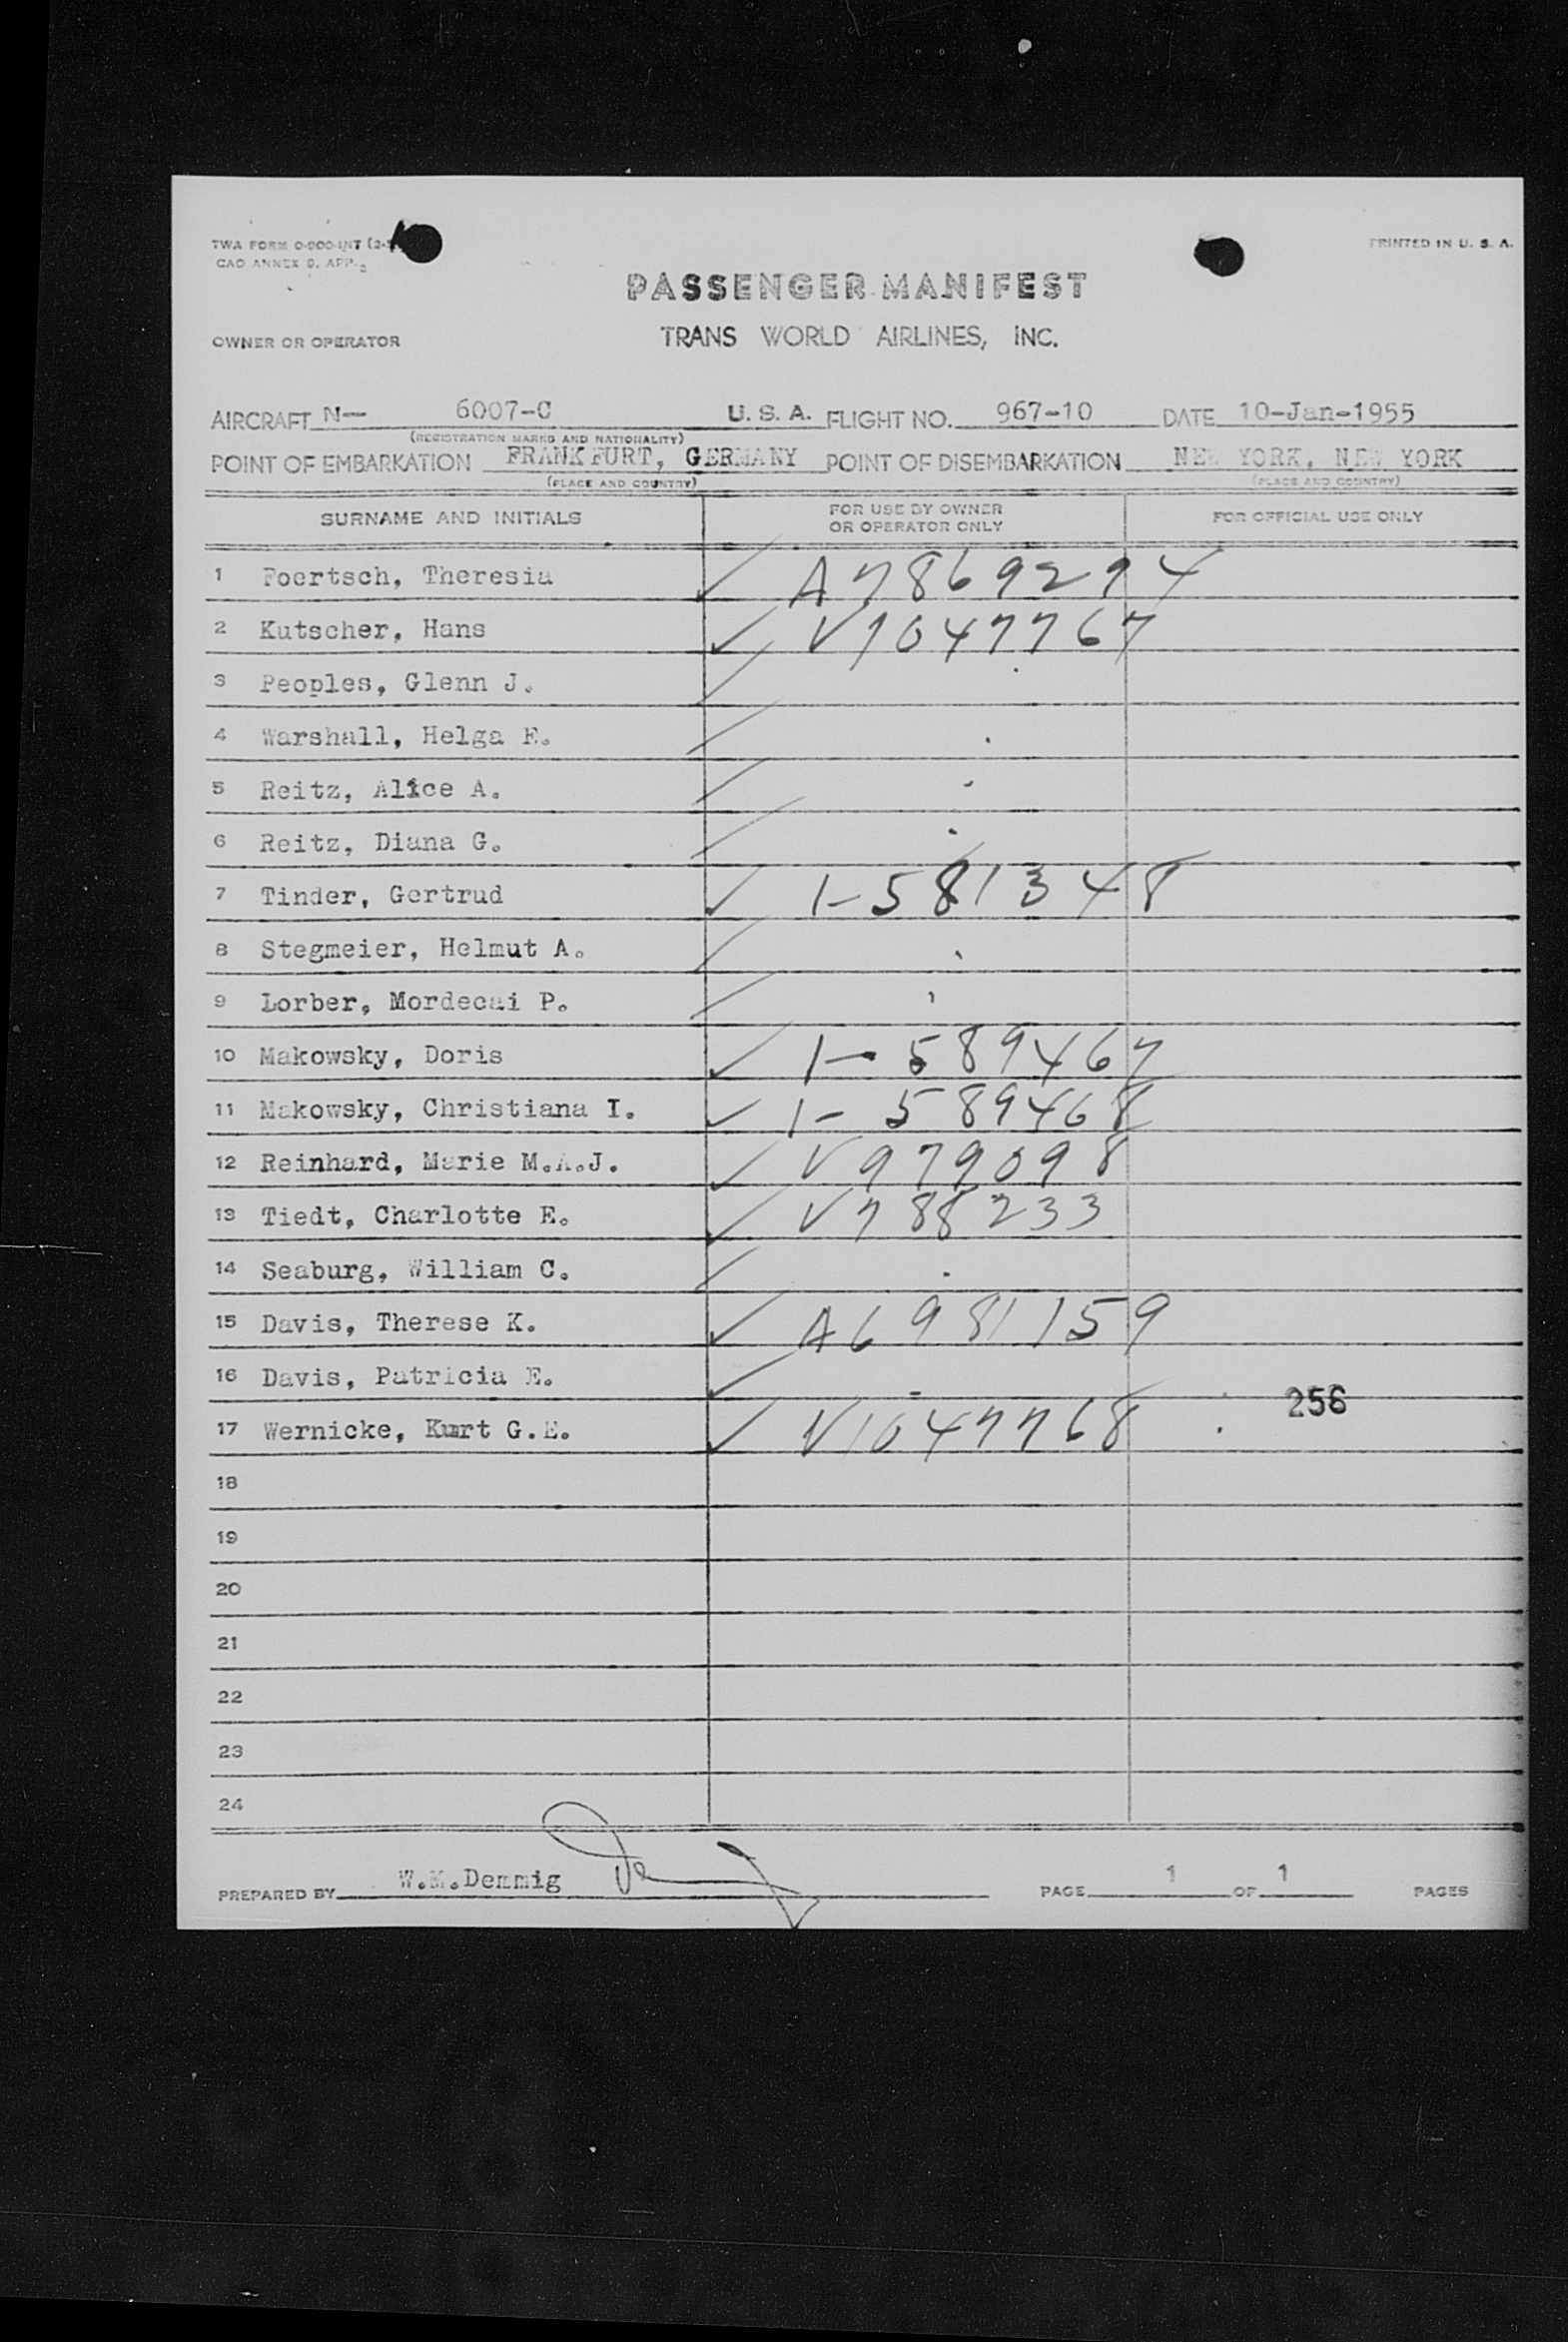 TWA FORM O-900-INT (2-
CAO ANNEX 9, APP. 2
PRINTED IN U. S. A.
PASSENGER MANIFEST
OWNER OR OPERATOR TRANS WORLD AIRLINES, INC.
AIRCRAFT N— 6007-C U. S. A. FLIGHT NO. 967-10 DATE 10-Jan-1955
(REGISTRATION MARKS AND NATIONALITY)
POINT OF EMBARKATION FRANKFURT, GERMANY POINT OF DISEMBARKATION NEW YORK, NEW YORK
(PLACE AND COUNTRY) (PLACE AND COUNTRY)
SURNAME AND INITIALS FOR USE BY OWNER OR OPERATOR ONLY FOR OFFICIAL USE ONLY
1 Foertsch, Theresia ✓ A7869294
2 Kutscher, Hans ✓ V1047767
3 Peoples, Glenn J.
4 Warshall, Helga E.
5 Reitz, Alice A.
6 Reitz, Diana G.
7 Tinder, Gertrud ✓ 1-581348
8 Stegmeier, Helmut A.
9 Lorber, Mordecai P.
10 Makowsky, Doris ✓ 1-589467
11 Makowsky, Christiana I. ✓ 1-589468
12 Reinhard, Marie M.A.J. ✓ V979098
13 Tiedt, Charlotte E. ✓ V788233
14 Seaburg, William C.
15 Davis, Therese K. ✓ A6981159
16 Davis, Patricia E. ✓ -
256
17 Wernicke, Kurt G.E. ✓ V1047768
18
19
20
21
22
23
24
PREPARED BY W.M.Demmig PAGE 1 OF 1 PAGES